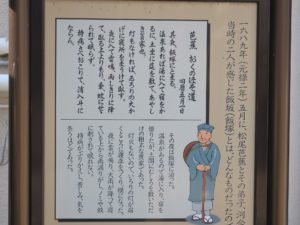 一六八九年（元禄二年）五月に、松尾芭蕉とその弟子、河合
当時の二人が感じた飯坂（飯塚）とは、どんなものだったの
芭蕉 おくのほそ道
五月二日
其夜、飯塚にとまる。
温泉あれば湯に入て宿をか
るに、土坐に莚を敷て、あやし
き貧家也。
灯もなければ、ゐろりの火か
げに寝所をまうけて臥す。
夜に入て雷鳴、雨しきりに降
て、臥る上よりもり、蚤、蚊にせ
られて眠らず。
持病さへおこりて、消入斗に
なん。
その夜は飯塚に泊った。
温泉があるので湯に入り、宿を
借りたが、土間にむしろを敷いただ
けの粗末な貧家であった。
灯火もないので、いろりの灯が
くところに寝床をつくり横になった。
夜に雷が鳴り、大雨が降って寝
ているところに雨漏りがし、ノミや蚊
に刺されて眠れない。
持病がぶり返して苦しみ、気を